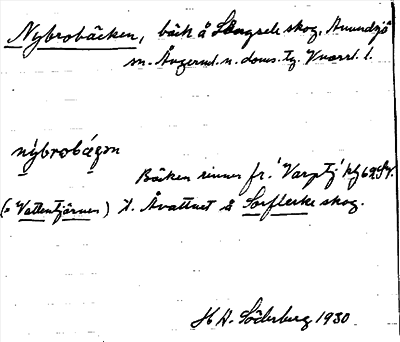 Nybrobäcken, bäck å skog, Anundsjö
sn. Ångerml. n. doms. tg. Vnorrl. l.
nybrobą́gən
Bäcken rinner fr. Varptj
(= Vattentjärnen) t. Åvattnet å Sörflärke skog.
H A. Söderberg 1930